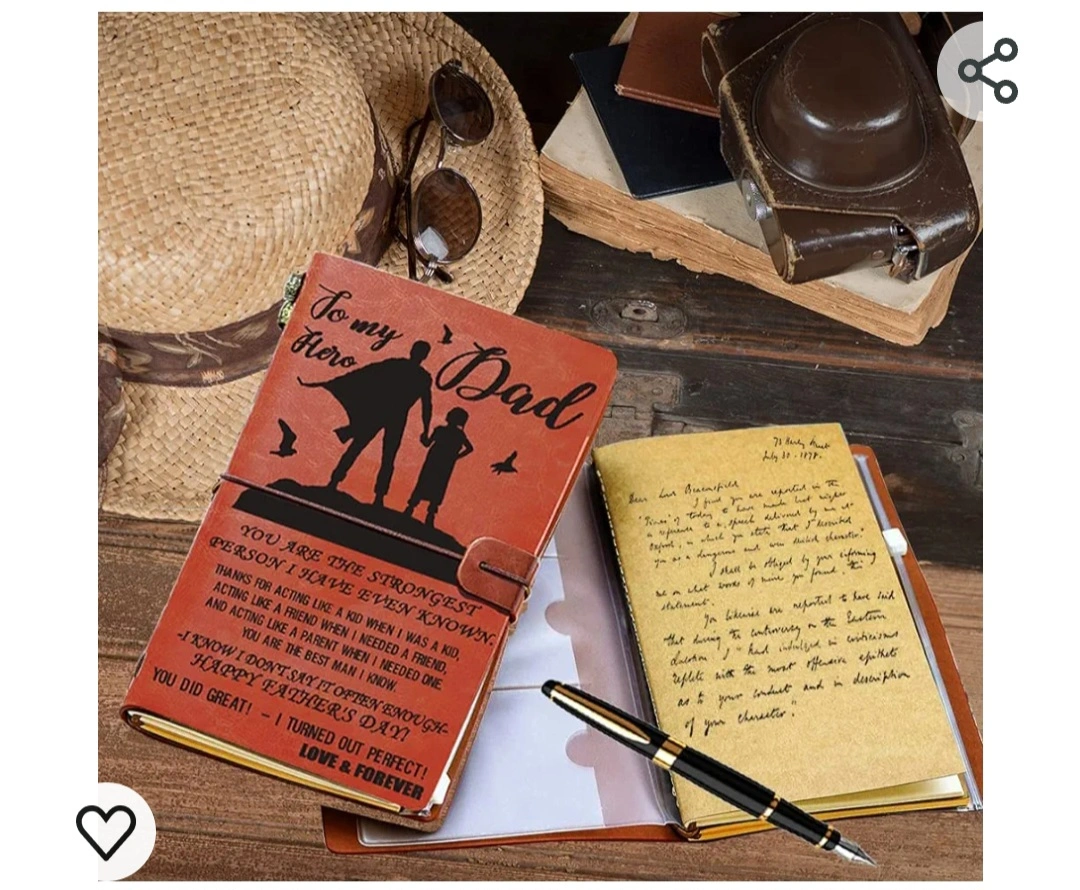 To my
Hero
Dad
YOU ARE THE STRONGEST
PERSON I HAVE EVEN KNOWN
THANKS FOR ACTING LIKE A KID WHEN I WAS A KID,
ACTING LIKE A FRIEND WHEN I NEEDED A FRIEND,
AND ACTING LIKE A PARENT WHEN I NEEDED ONE.
YOU ARE THE BEST MAN I KNOW.
-I KNOW I DON'T SAY IT OFTEN ENOUGH-
HAPPY FATHER'S DAY!
YOU DID GREAT! - I TURNED OUT PERFECT!
LOVE & FOREVER
July 30 - 1878.
Dear Lord Beaconsfield
I find you are reported in the
"Times" of today to have made last night
a reference to a speech delivered by me at
Oxford, in which you state that I described
you as a dangerous and character."
I shall be obliged by your informing
me on what words of mine you found this
statement.
You likewise are reported to have said
that during the controversy on the Eastern
Question, I "had indulged in criticisms
replete with the most offensive epithets
as to your conduct and in description
of your character."